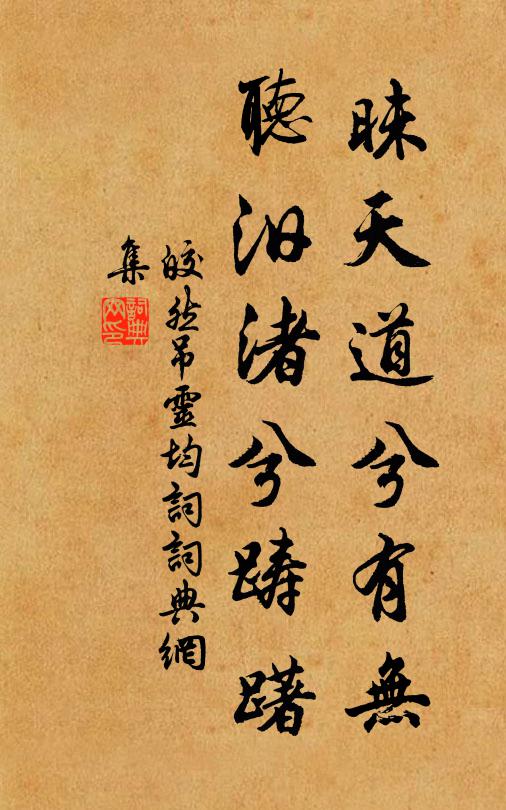 昧天道兮有無
聽汨渚兮踌躇
皎然吊靈均詞詞典網
集
詞典